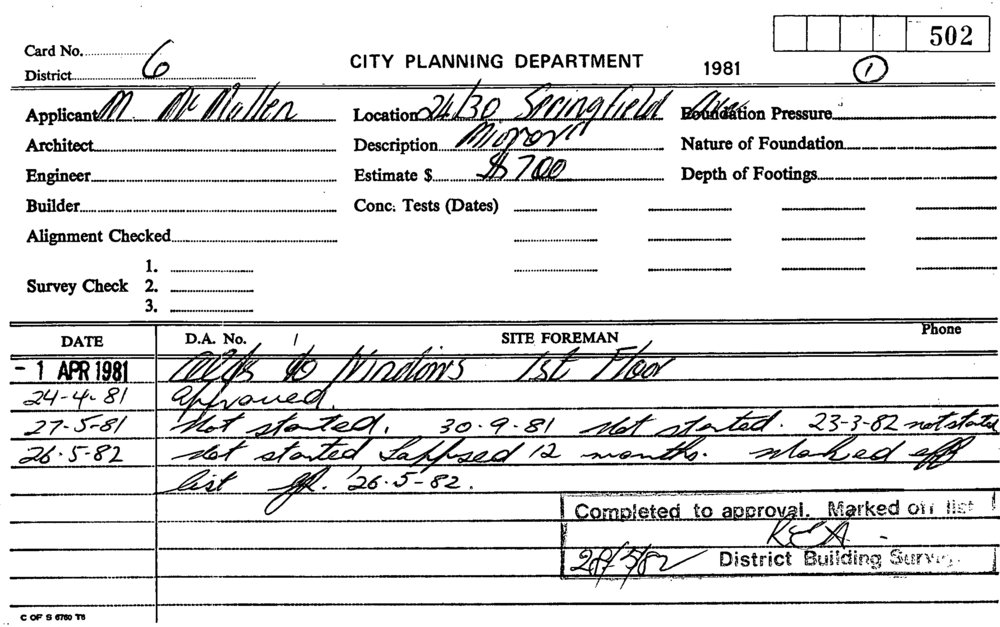 502
Card No. 6
District
CITY PLANNING DEPARTMENT
1981 1
Applicant M. McMullen Location 24/30 Springfield Ave. Foundation Pressure
Architect Description Nature of Foundation
Engineer Estimate $ $700 Depth of Footings
Builder Conc. Tests (Dates)
Alignment Checked
1.
Survey Check 2.
3.
DATE D.A. No. SITE FOREMAN Phone
- 1 APR 1981 to Windows 1st Floor
24-4-81 Approved.
27-5-81 Not started. 30-9-81 Not started. 23-3-82 not started
26-5-82 Not started Lappsed 12 months. Marked off
list 26-5-82.
Completed to approval. Marked off list
28/5/82 District Building Survey.
C OF S 6760 T6